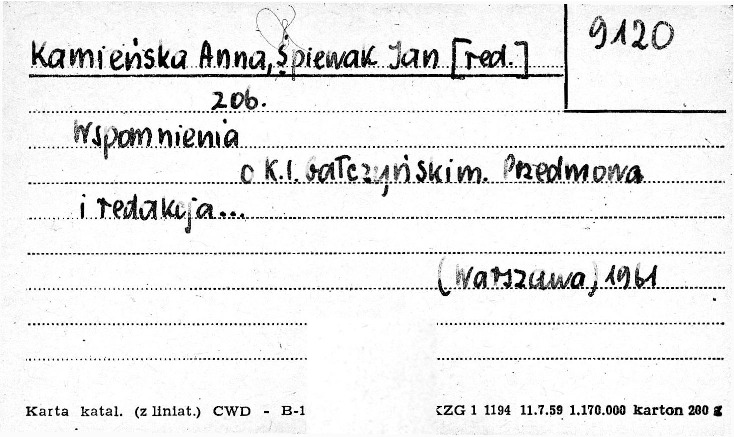 Kamieńska Anna, Śpiewak Jan [red.]
9120
zob.
Wspomnienia
o K.I. Gałczyńskim. Przedmowa
i redakcja...
(Warszawa) 1961
Karta katal. (z liniat.) CWD - B-1
KZG 1 1194 11.7.59 1.170.000 karton 200 g